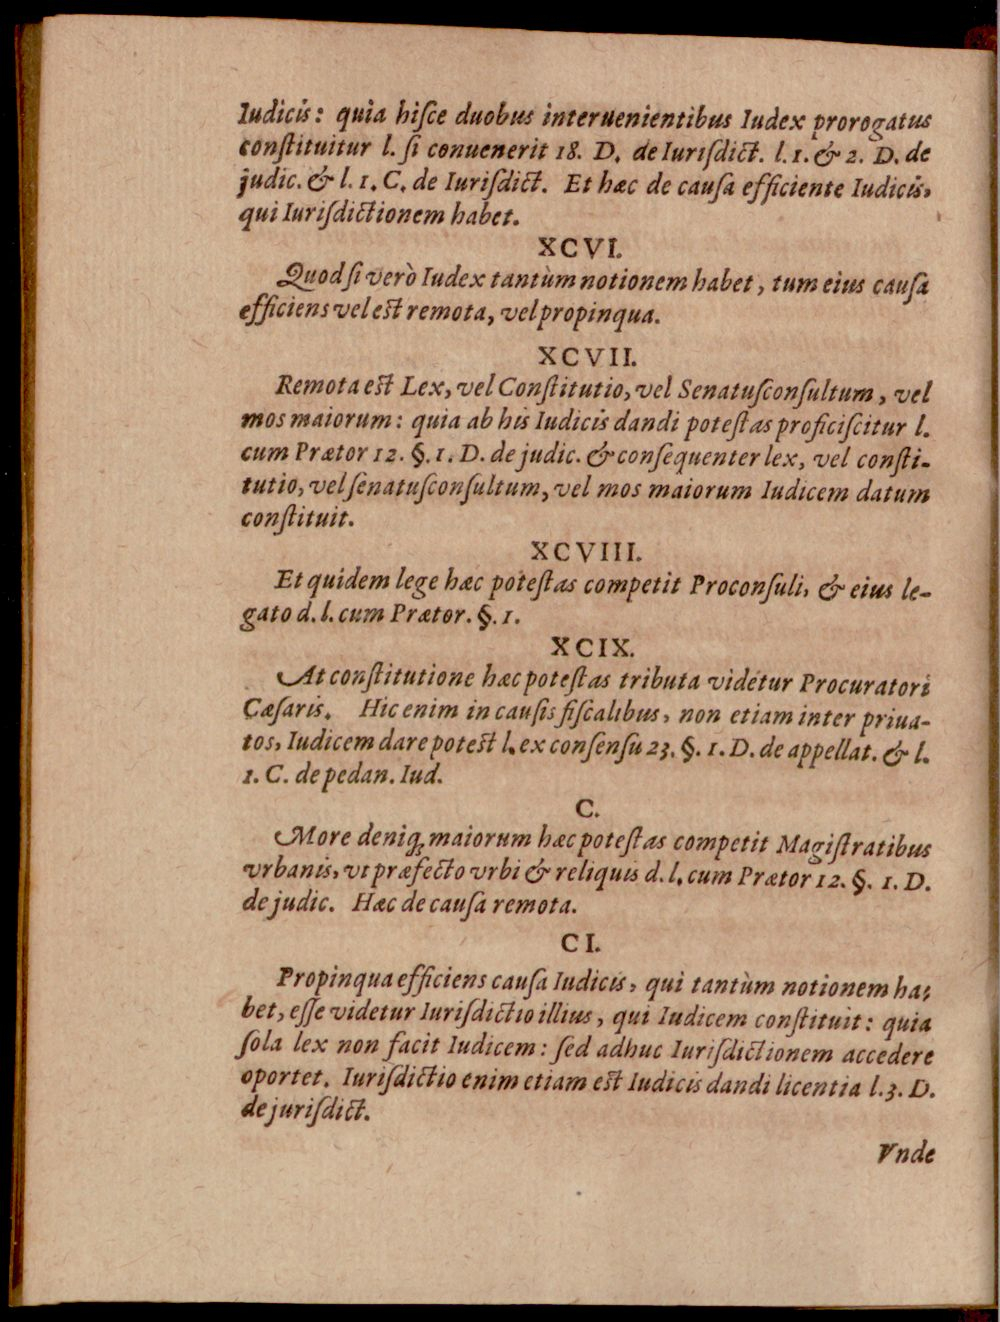 Iudicis: quìa hiſce duobus interuenientibus Iudex prorogatus
conſtituitur l. ſi conuenerit 18. D. de Iuriſdict. l. 1. & 2. D. de
judic. & l. 1. C. de Iuriſdict. Et hæc de cauſa efficiente Iudicis,
qui Iuriſdictionem habet.
XCVI.
Quod ſi verò Iudex tantùm notionem habet, tum eius cauſa
efficiens vel est remota, vel propinqua.
XCVII.
Remota est Lex, vel Conſtitutio, vel Senatuſconſultum, vel
mos maiorum: quia ab his Iudicis dandi poteſtas proficiſcitur l.
cum Prætor 12. §. 1. D. de judic. & conſequenter lex, vel conſti-
tutio, vel ſenatuſconſultum, vel mos maiorum Iudicem datum
conſtituit.
XCVIII.
Et quidem lege hæc poteſtas competit Proconſuli, & eius le-
gato d. l. cum Prætor. §. 1.
XCIX.
At conſtitutione hæc poteſtas tributa videtur Procuratori
Cæſaris. Hic enim in cauſis fiſcalibus, non etiam inter priua-
tos, Iudicem dare potest l. ex conſenſu 23. §. 1. D. de appellat. & l.
1. C. de pedan. Iud.
C.
More deniq; maiorum hæc poteſtas competit Magiſtratibus
vrbanis, vt præfecto vrbi & reliquis d. l. cum Prætor 12. §. 1. D.
de judic. Hæc de cauſa remota.
CI.
Propinqua efficiens cauſa Iudicis, qui tantùm notionem ha-
bet, eſſe videtur Iuriſdictio illius, qui Iudicem conſtituit: quia
ſola lex non facit Iudicem: ſed adhuc Iuriſdictionem accedere
oportet. Iuriſdictio enim etiam est Iudicis dandi licentia l. 3. D.
de juriſdict.
Vnde